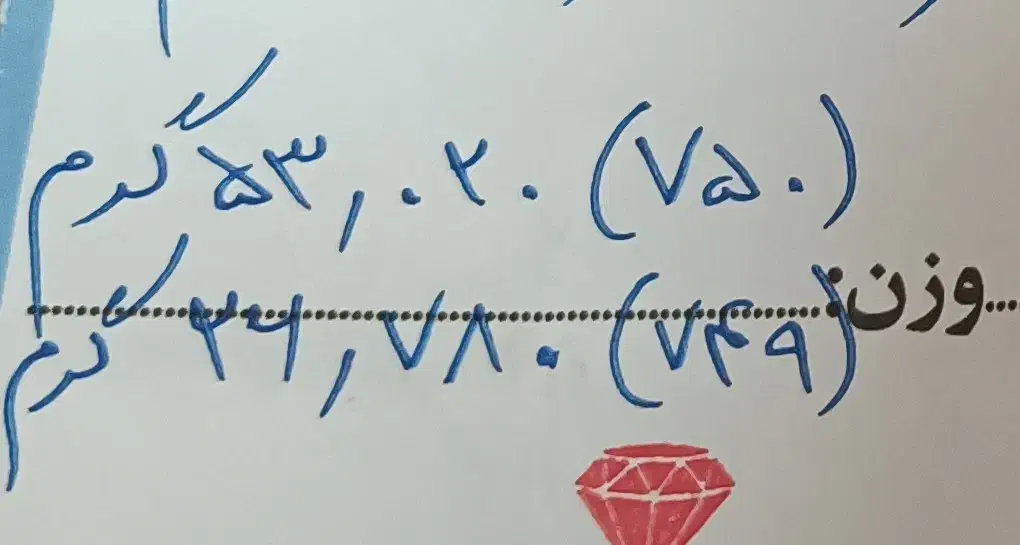 (۷۵۰) ۵۳,۰۲۰ گرم
وزن: (۷۴۹) ۲۶,۷۸۰ گرم